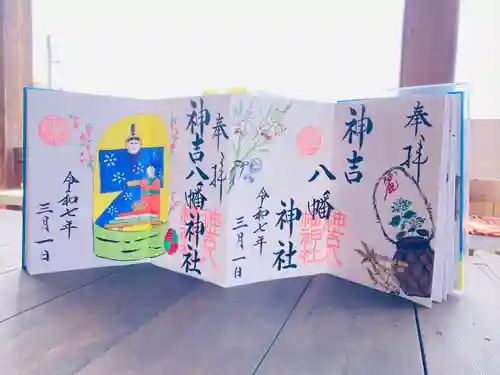 奉拝
神吉八幡神社
令和七年
三月一日
奉拝
神吉
八幡
神社
令和七年
三月一日